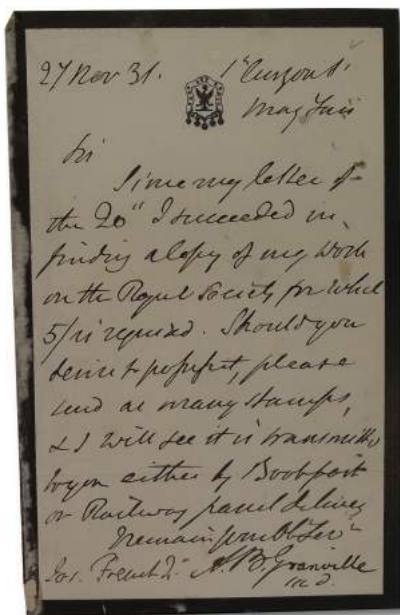 27 Nov 31. 1 Curzon St
May Fair
Sir
Since my letter of
the 20" I succeeded in
finding a copy of my work
on the Royal Society for which
5/ is required. Should you
desire to possess it, please
send as many stamps,
& I will see it is transmitted
to you either by Book post
or Railway parcel delivery
I remain your Ob Ser
Jas. French A. B. Granville
M.D.